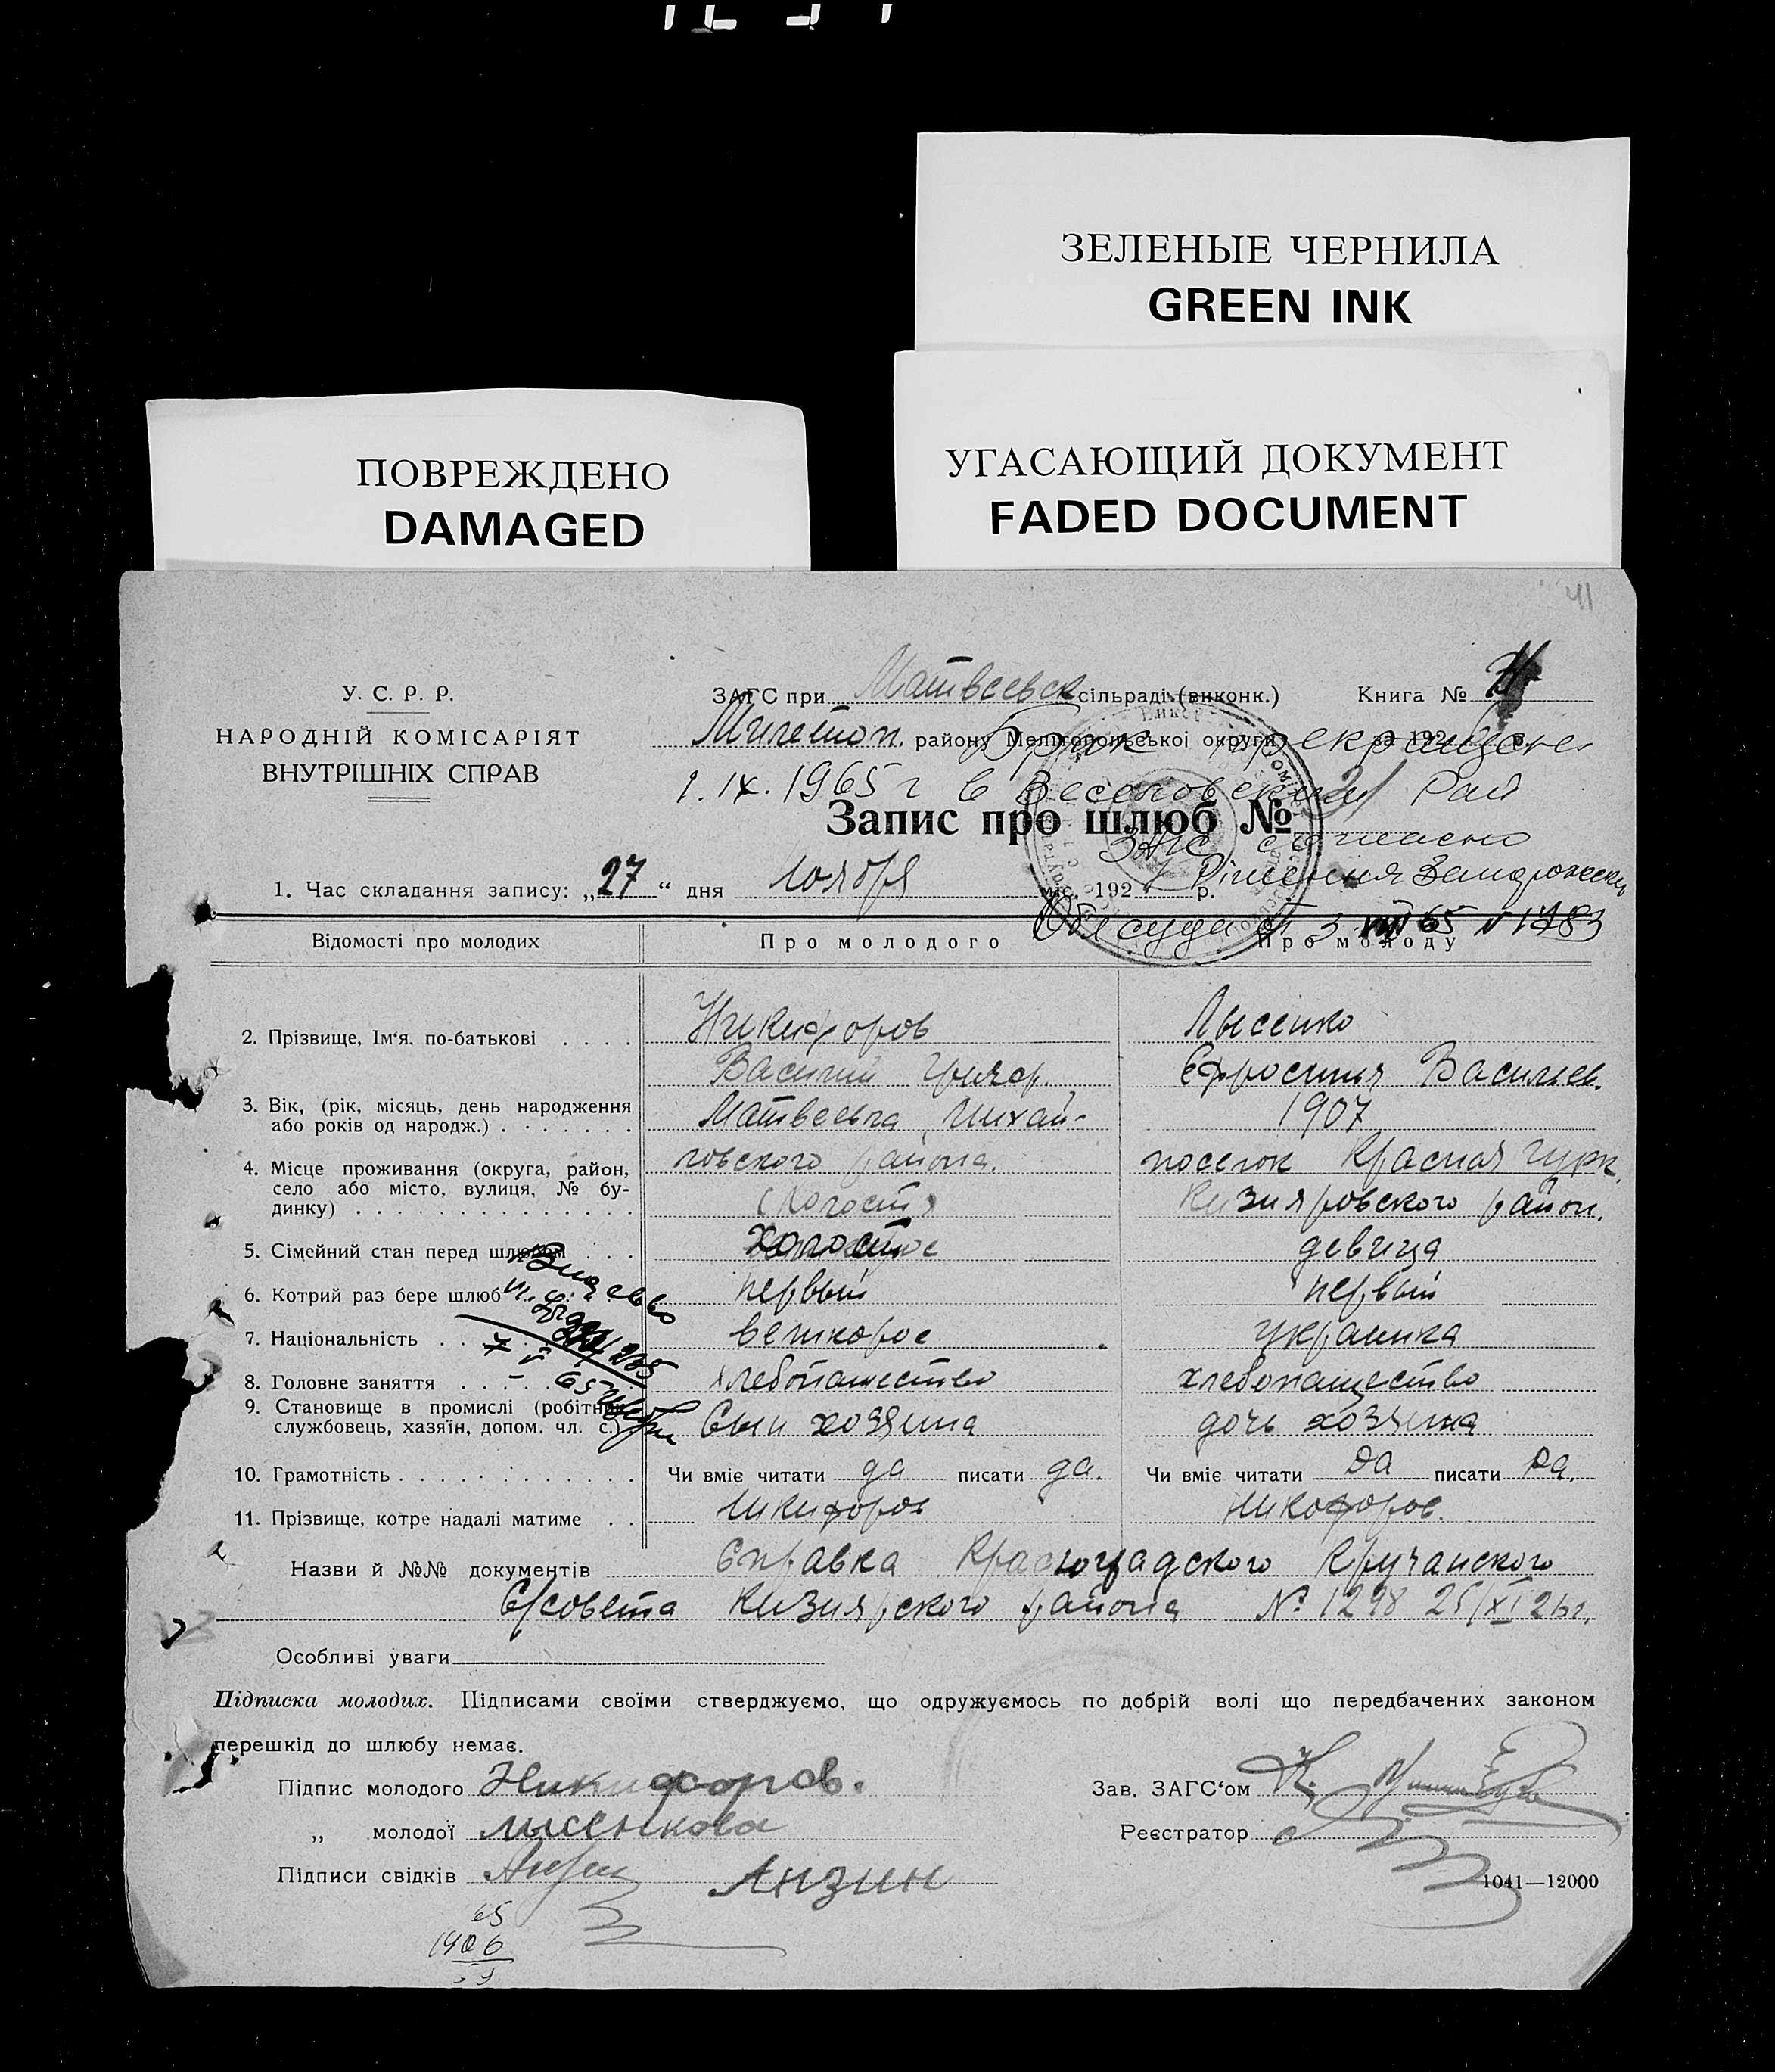 ЗЕЛЕНЫЕ ЧЕРНИЛА
GREEN INK
УГАСАЮЩИЙ ДОКУМЕНТ
FADED DOCUMENT
ПОВРЕЖДЕНО
DAMAGED
41
У. С. Р. Р.
НАРОДНІЙ КОМІСАРІЯТ
ВНУТРІШНІХ СПРАВ
ЗАГС при Матвеевск сільраді (виконк.) Книга №
Мелітоп. району Мелітопольської округи за 192 р.
Брак прекращен
1.IX.1965 г в Веселовским Рай
ЗАГС согласно
Рішення Запорожск
Обл суда от 3 VIII 65 N 1783
Запис про шлюб № 31
1. Час складання запису: „27“ дня ноября міс. 192 р.
Відомості про молодих Про молодого Про молоду
2. Прізвище, Ім'я, по-батькові . . . . Никифоров Лысенко
Василий Григор. Ефросинья Васильев.
3. Вік, (рік, місяць, день народження або років од народж.) . . . . . . . Матвеевка Михай- 1907
4. Місце проживання (округа, район, село або місто, вулиця, № будинку) . . . . . . . . . . . . . ловского района. поселок Красная Гурк.
(холост) Кизияровского район.
5. Сімейний стан перед шлюбом . . . холост девица
6. Котрий раз бере шлюб первый первый
7. Національність . . великорос украинка
8. Головне заняття . . . . . хлебопашество хлебопащество
9. Становище в промислі (робітник, службовець, хазяїн, допом. чл. с.) Сын хозяина дочь хозяина
10. Грамотність . . . . . . . . . . . . Чи вміє читати да писати да. Чи вміє читати да писати да.
11. Прізвище, котре надалі матиме . . Никифоров Никофоров.
Назви й №№ документів Справка Красноградского Кручанского
С/совета Кизиярского района № 1298 25/XI 26г.
Особливі уваги
Підписка молодих. Підписами своїми стверджуємо, що одружуємось по добрій волі що передбачених законом
перешкід до шлюбу немає.
Підпис молодого Никифоров. Зав. ЗАГС'ом
„ молодої Лисенкова Реєстратор
Підписи свідків Анзин
1041—12000
65
1906